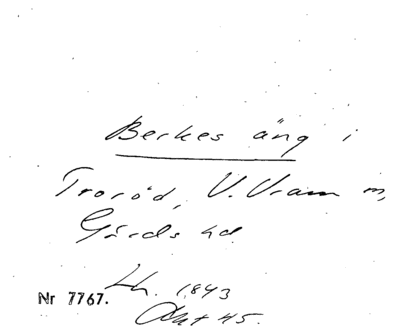 Berkes äng i
Troröd, V. Vram sn,
Gärds hd.
Lh. 1843
Akt 45.
Nr 7767.